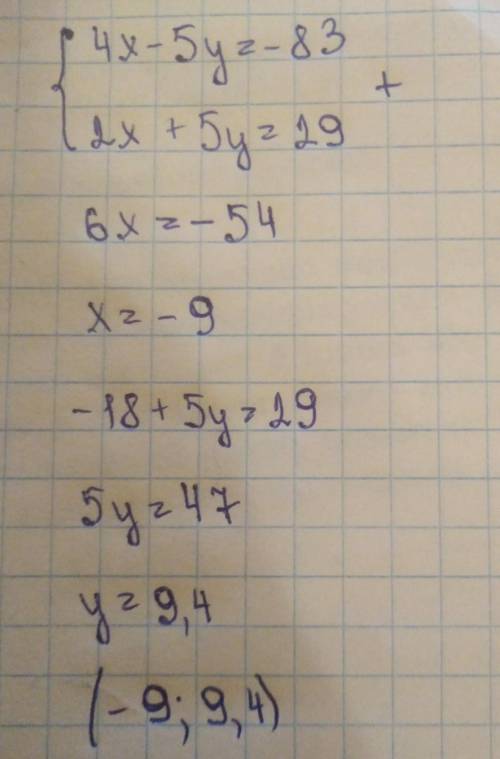 { 4x - 5y = - 83
2x + 5y = 29 +
6x = - 54
x = - 9
-18 + 5y = 29
5y = 47
y = 9,4
(- 9; 9,4)